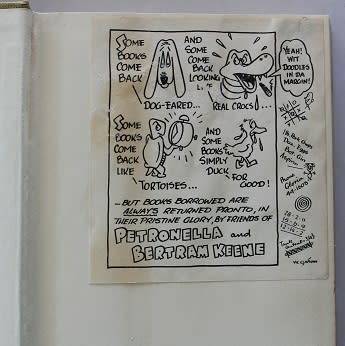 SOME
BOOKS
COME
BACK
DOG-EARED...
AND
SOME
COME
BACK
LOOKING
LIKE
REAL CROCS!...
YEAH!
WIT
DOODLES
IN DA
MARGIN!
SOME
BOOKS
COME
BACK
LIKE
TORTOISES...
AND
SOME
BOOKS
SIMPLY
DUCK
FOR
GOOD!
—BUT BOOKS BORROWED ARE
ALWAYS RETURNED PRONTO, IN
THEIR PRISTINE GLORY, BY FRIENDS OF
PETRONELLA and
BERTRAM KEENE
Doz. Eggs
Bot Gin
Aspirin
Phone
Gloria